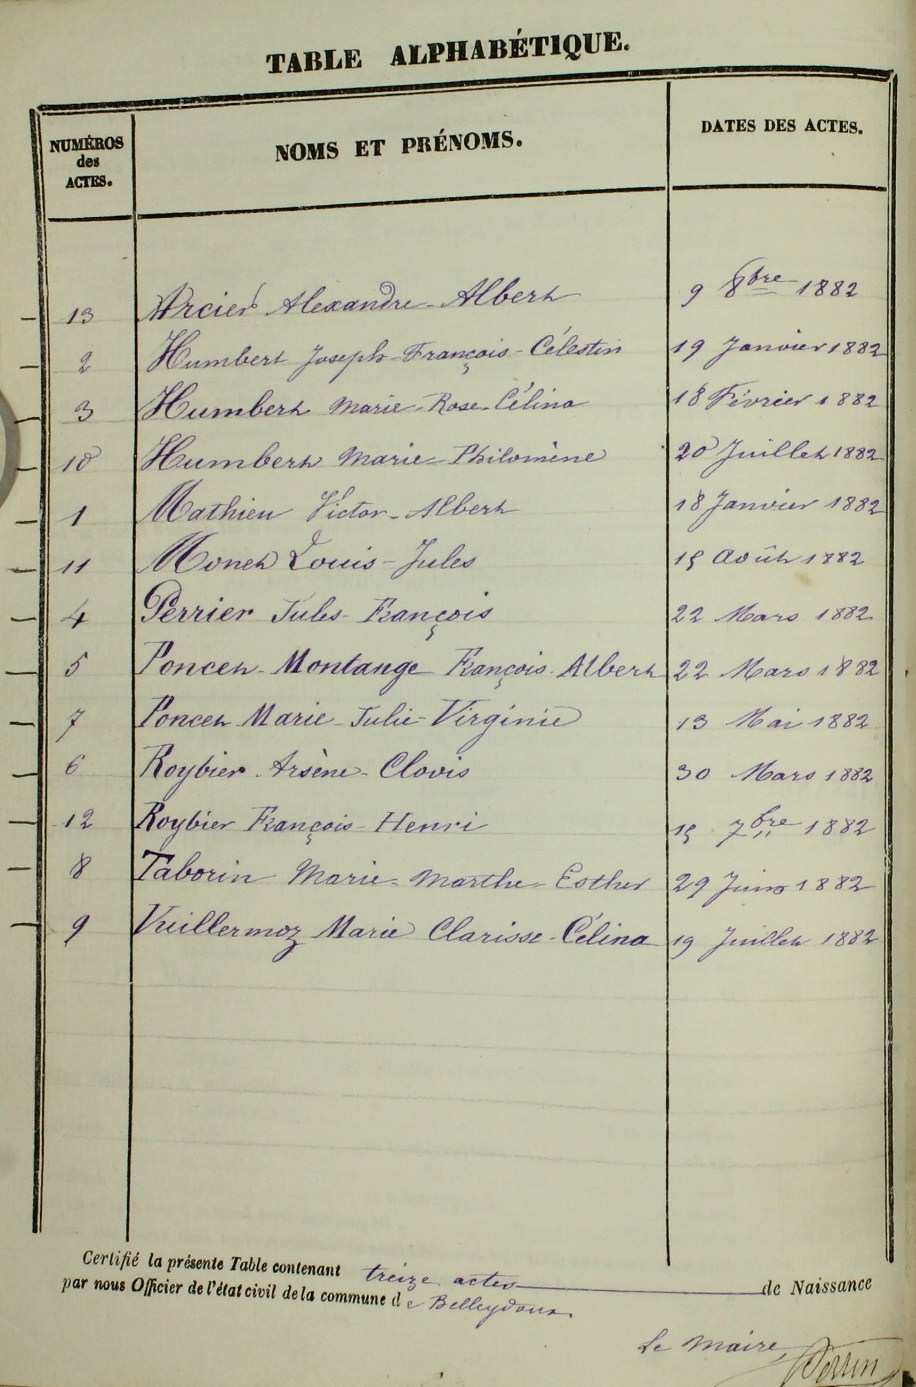 TABLE ALPHABÉTIQUE.
NUMÉROS des ACTES. NOMS ET PRÉNOMS. DATES DES ACTES.
13 Arcier Alexandre-Albert 9 8bre 1882
2 Humbert Joseph-François-Célestin 19 Janvier 1882
3 Humbert Marie-Rose-Célina 18 Février 1882
10 Humbert Marie-Philomène 20 Juillet 1882
1 Mathieu Victor-Albert 18 Janvier 1882
11 Monet Louis-Jules 15 Août 1882
4 Perrier Jules-François 22 Mars 1882
5 Poncet-Montange François-Albert 22 Mars 1882
7 Poncet Marie-Julie-Virginie 13 Mai 1882
6 Roybier Arsène-Clovis 30 Mars 1882
12 Roybier François-Henri 15 7bre 1882
8 Taborin Marie-Marthe-Esther 29 Juin 1882
9 Vuillermoz Marie Clarisse-Célina 19 Juillet 1882
Certifié la présente Table contenant treize actes de Naissance
par nous Officier de l'état civil de la commune de Belleydoux.
Le Maire,
Perrin